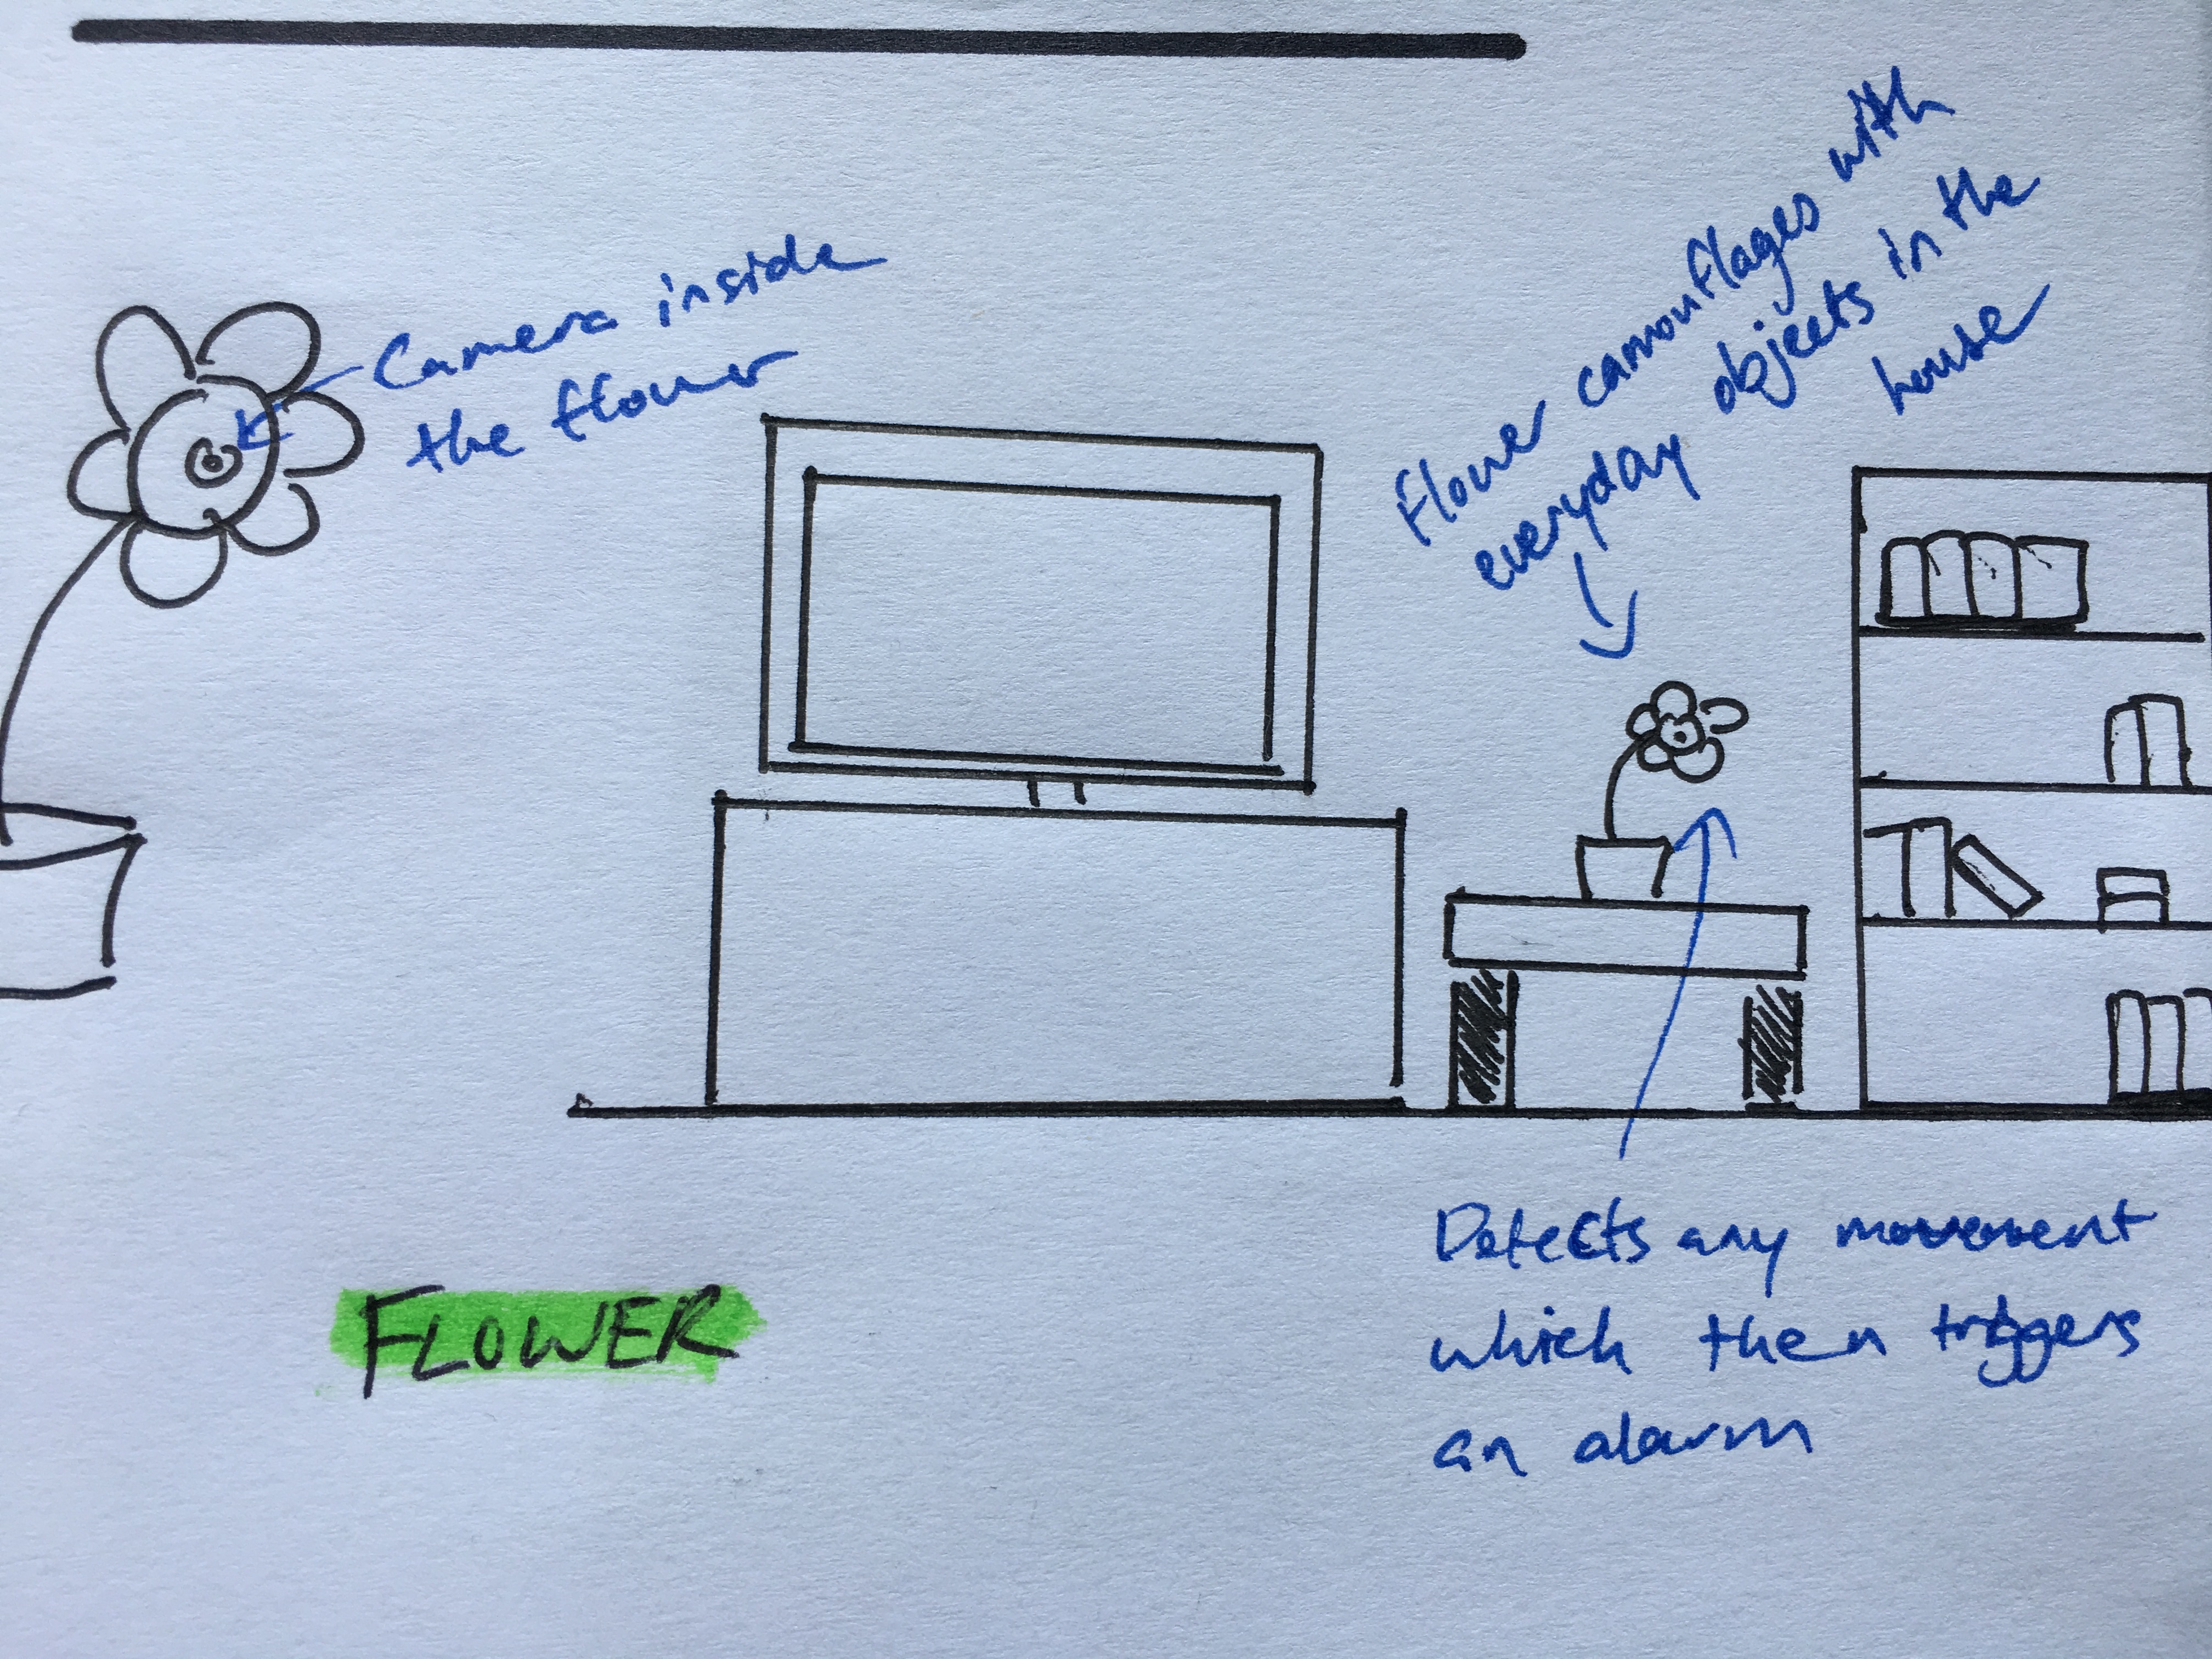 Camera inside
the flower
Flower cammouflages with
everyday objects in the
house
FLOWER
Detects any movement
which then triggers
an alarm